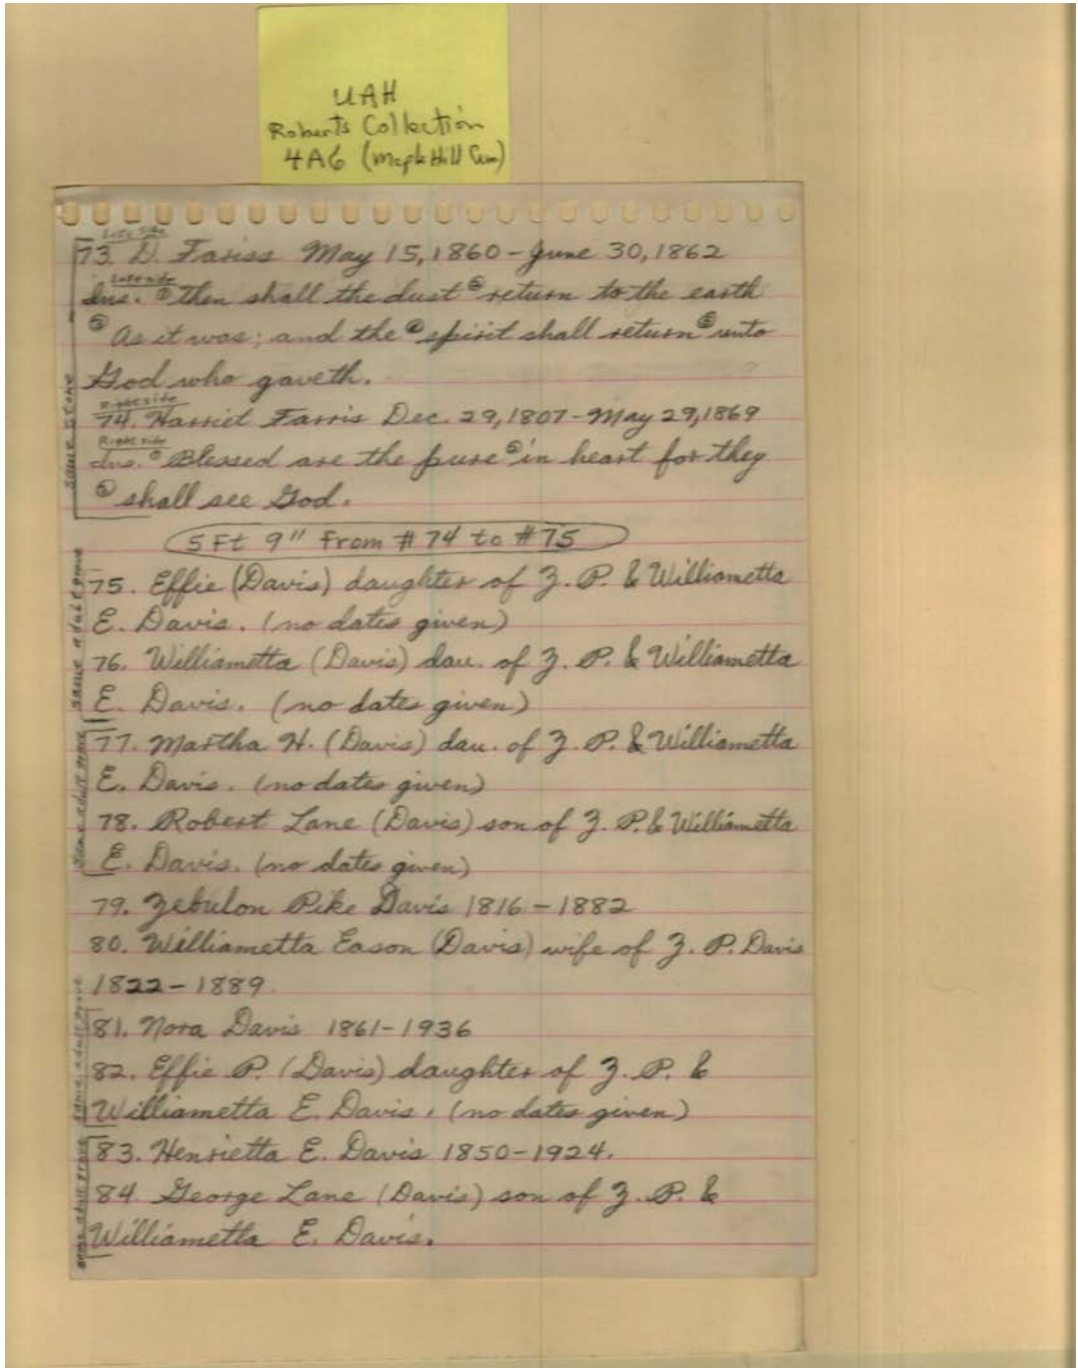 UAH
Roberts Collection
4A6 (Maple Hill Cem)
Left side
73. D. Fariss May 15, 1860 - June 30, 1862
Left side
Ins. ① Then shall the dust ② return to the earth
③ As it was; and the ④ spirit shall return ⑤ unto
God who gaveth.
Right side
74. Harriet Farris Dec. 29, 1807 - May 29, 1869
Right side
Ins. ① Blessed are the pure ② in heart for they
③ shall see God.
same stone
5 Ft 9" From # 74 to # 75
75. Effie (Davis) daughter of Z. P. & Williametta
E. Davis. (no dates given)
76. Williametta (Davis) dau. of Z. P. & Williametta
E. Davis. (no dates given)
same adult grave
77. Martha H. (Davis) dau. of Z. P. & Williametta
E. Davis. (no dates given)
78. Robert Lane (Davis) son of Z. P. & Williametta
E. Davis. (no dates given)
same adult grave
79. Zebulon Pike Davis 1816 - 1882
80. Williametta Eason (Davis) wife of Z. P. Davis
1822 - 1889
81. Nora Davis 1861 - 1936
82. Effie P. (Davis) daughter of Z. P. &
Williametta E. Davis. (no dates given)
same adult grave
83. Henrietta E. Davis 1850 - 1924.
84 George Lane (Davis) son of Z. P. &
Williametta E. Davis.
same adult grave